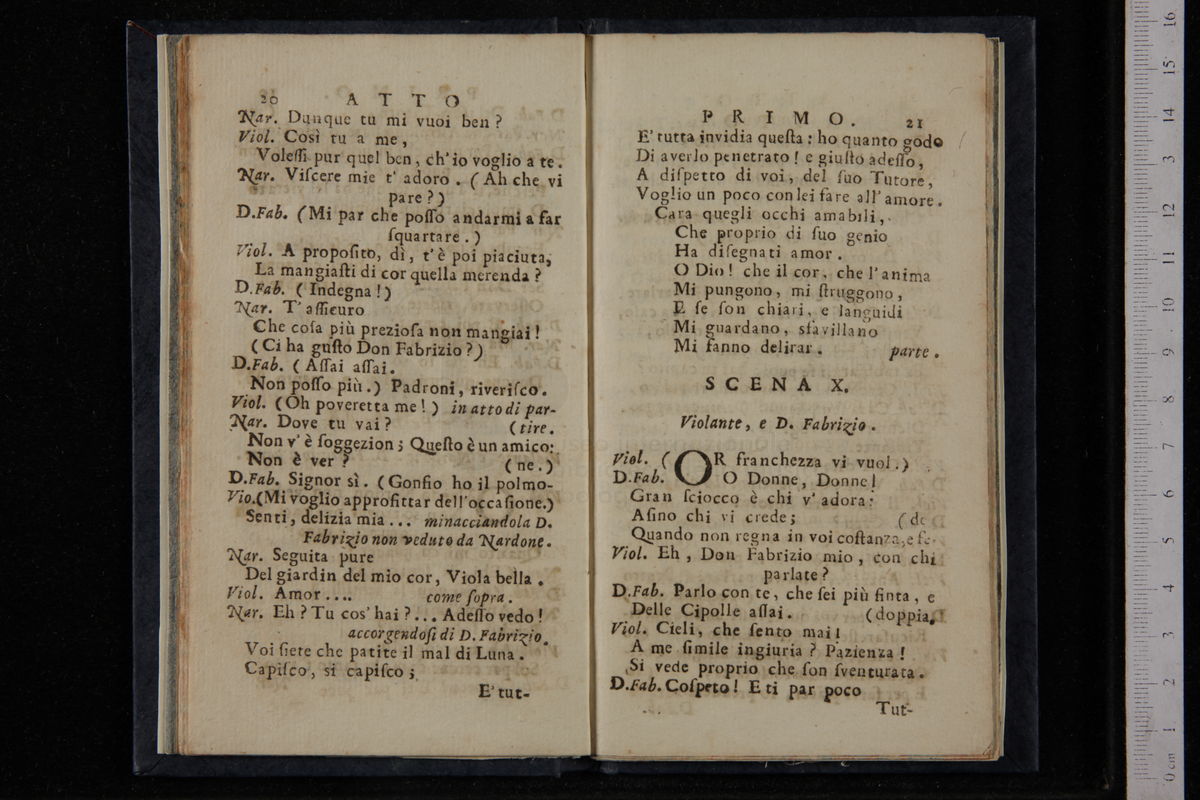 20 ATTO
Nar. Dunque tu mi vuoi ben?
Viol. Così tu a me,
Voleſſi pur quel ben, ch'io voglio a te.
Nar. Viſcere mie t' adoro. (Ah che vi
pare?)
D.Fab. (Mi par che poſſo andarmi a far
ſquartare.)
Viol. A propoſito, dì, t'è poi piaciuta,
La mangiaſti di cor quella merenda?
D.Fab. (Indegna!)
Nar. T' aſſicuro
Che coſa più prezioſa non mangiai!
(Ci ha guſto Don Fabrizio?)
D.Fab. (Aſſai aſſai.
Non poſſo più.) Padroni, riveriſco.
Viol. (Oh poveretta me!) in atto di par-
Nar. Dove tu vai? (tire.
Non v'è ſoggezion; Queſto è un amico:
Non è ver? (ne.)
D.Fab. Signor sì. (Gonfio ho il polmo-
Vio.(Mi voglio approfittar dell'occaſione.)
Senti, delizia mia ... minacciandola D.
Fabrizio non veduto da Nardone.
Nar. Seguita pure
Del giardin del mio cor, Viola bella.
Viol. Amor .... come ſopra.
Nar. Eh? Tu cos' hai?... Adeſſo vedo!
accorgendoſi di D. Fabrizio.
Voi ſiete che patite il mal di Luna.
Capiſco, si capiſco;
E' tut-
PRIMO. 21
E' tutta invidia queſta: ho quanto godo
Di averlo penetrato! e giuſto adeſſo,
A diſpetto di voi, del ſuo Tutore,
Voglio un poco con lei fare all' amore.
Cara quegli occhi amabili,
Che proprio di ſuo genio
Ha diſegnati amor.
O Dio! che il cor, che l'anima
Mi pungono, mi ſtruggono,
E ſe ſon chiari, e languidi
Mi guardano, sfavillano
Mi fanno delirar. parte.
SCENA X.
Violante, e D. Fabrizio.
Viol. (OR franchezza vi vuol.)
D.Fab. O Donne, Donne!
Gran ſciocco è chi v' adora:
Aſino chi vi crede; (de
Quando non regna in voi coſtanza, e fe-
Viol. Eh, Don Fabrizio mio, con chi
parlate?
D.Fab. Parlo con te, che ſei più finta, e
Delle Cipolle aſſai. (doppia,
Viol. Cieli, che ſento mai!
A me ſimile ingiuria? Pazienza!
Si vede proprio che ſon ſventurata.
D.Fab. Coſpeto! E ti par poco
Tut-
0 cm 1 2 3 4 5 6 7 8 9 10 11 12 13 14 15 16